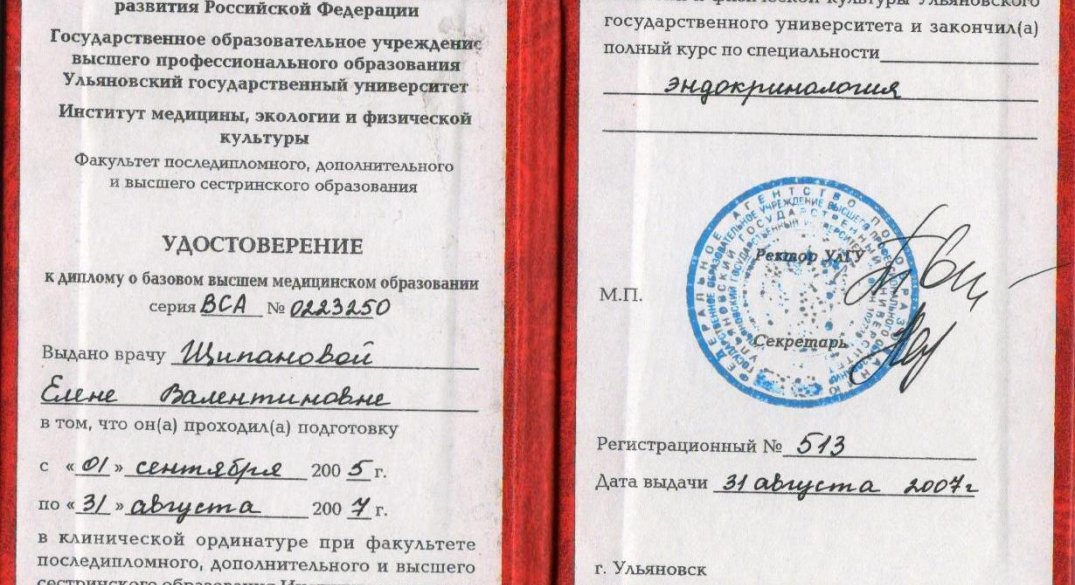 развития Российской Федерации
Государственное образовательное учреждение
высшего профессионального образования
Ульяновский государственный университет
Институт медицины, экологии и физической
культуры
Факультет последипломного, дополнительного
и высшего сестринского образования
УДОСТОВЕРЕНИЕ
к диплому о базовом высшем медицинском образовании
серия ВСА № 0223250
Выдано врачу Щипановой
Елене Валентиновне
в том, что он(а) проходил(а) подготовку
с «01» сентября 2005 г.
по «31» августа 2007 г.
в клинической ординатуре при факультете
последипломного, дополнительного и высшего
сестринского образования
и физической культуры Ульяновского
государственного университета и закончил(а)
полный курс по специальности
эндокринология
Ректор УлГУ
М.П.
Секретарь
Регистрационный № 513
Дата выдачи 31 августа 2007г
г. Ульяновск